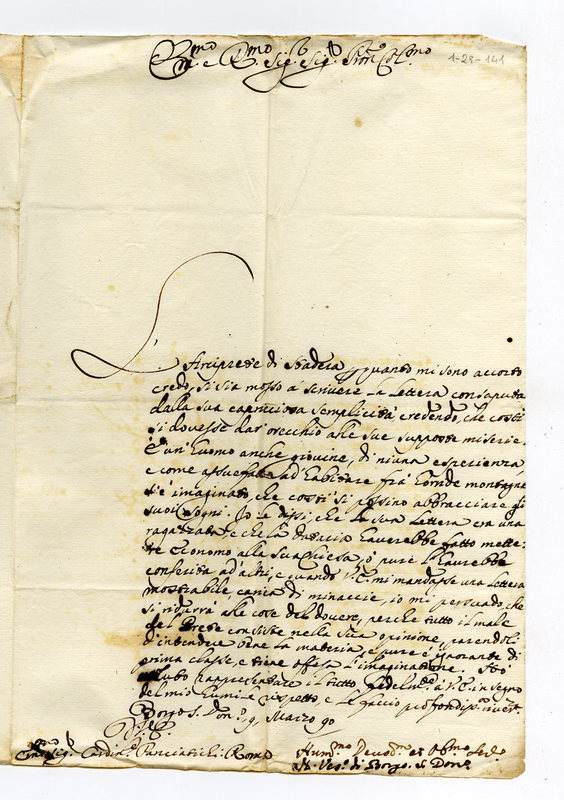 Em.mo e R.mo Sig.r Sig.r Pron Col.mo
1-28-141
L'Arciprete di quanto mi sono accorto
credo, si sia mosso à scrivere la Lettera consaputa
dalla sua capricciosa semplicità credendo, che costì
si dovesse dar orecchio alle sue supposte miserie.
È un'huomo anche giovine, di niuna esperienza
e come assuefatto ad habitare frà horride montagne
s'è imaginato, che costì si possino abbracciare gl
suoi sogni. Io le dissi, che la sua Lettera era una
ragazzata, e che la haverebbe fatto mette:
re Economo alla sua Chiesa, ò pure l'haverebbe
conferita ad'altri, e quando V.E. mi mandasse una Lettera
mostrabile, carica di minaccie, io mi persuado, che
si ridurrà alle cose del dovere, perche tutto il male
del Prete consiste nella sua opinione, parendoli
d'intendere bene la materia, e pure è ignorante di
prima classe, e tiene offesa l'imaginazione. Hò
voluto rappresentare il tutto fedelm.te à V.E. in segno
del mio humile rispetto, e le faccio profondiss.a river.
Borgo S. Don.o 9 Marzo 90
V.E.
Sig. Cardin.l Panciatichi: Roma
Hum.mo Devot.mo et Obl.mo Ser.e
Il Vesc.o di Borgo S. Don.o